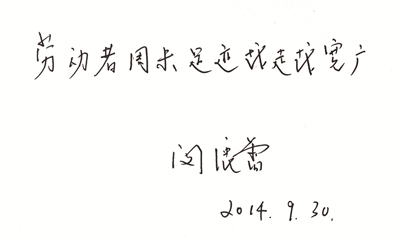 劳动者周末足迹越走越宽广
闵鹿蕾
2014.9.30.